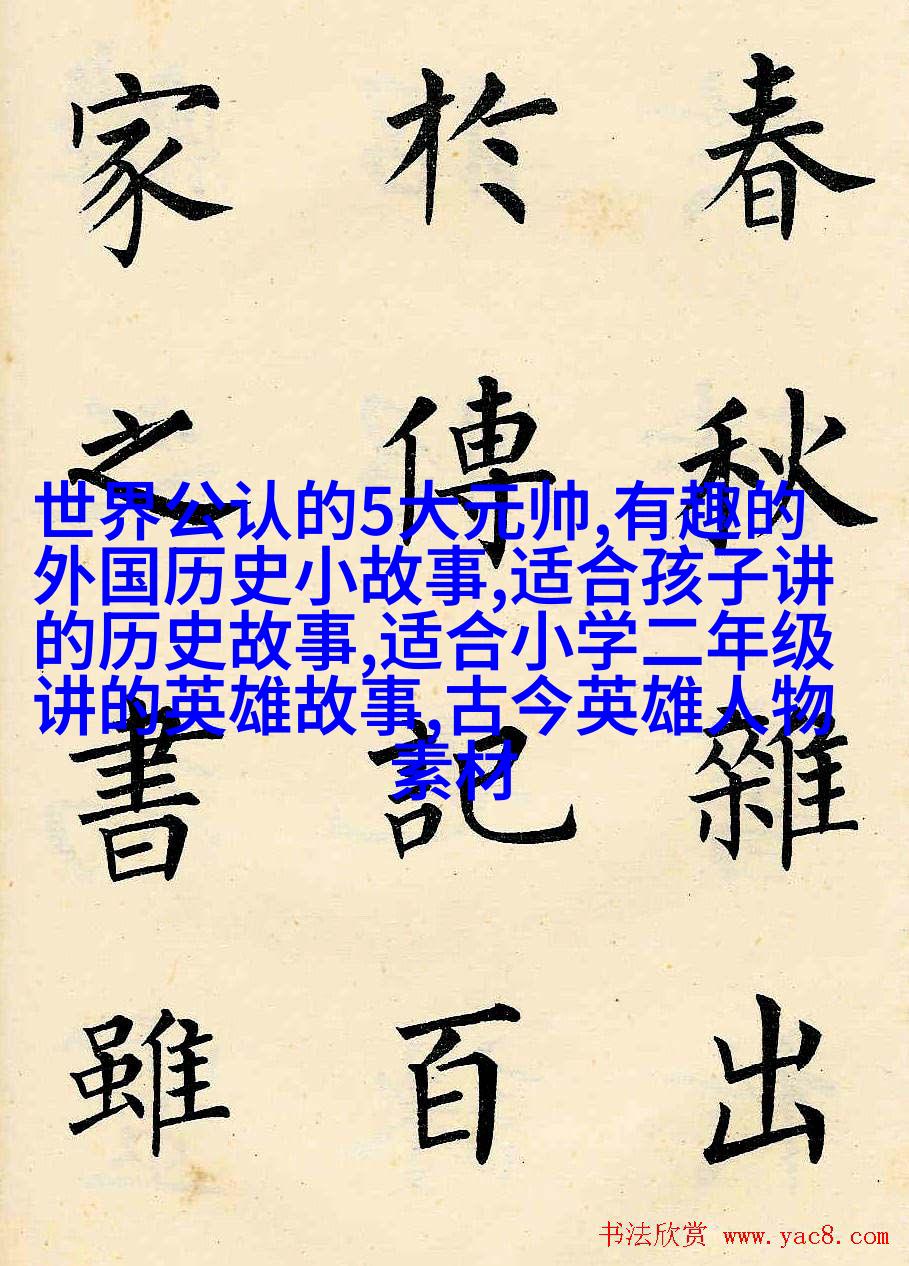 春秋雜出
於傳記百
家之書雖
世界公认的5大元帅,有趣的
外国历史小故事,适合孩子讲
的历史故事,适合小学二年级
讲的英雄故事,古今英雄人物
素材
书法欣赏 www.yac8.com